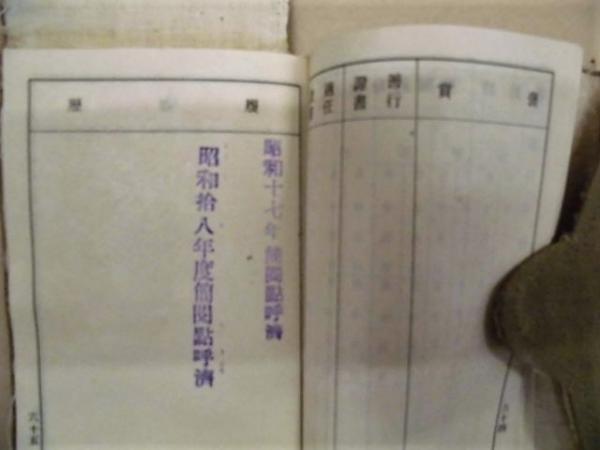 賞
善行
證書
適任
履歴
昭和十七年簡閲點呼濟
昭和拾八年度簡閲點呼濟
六十五
六十四